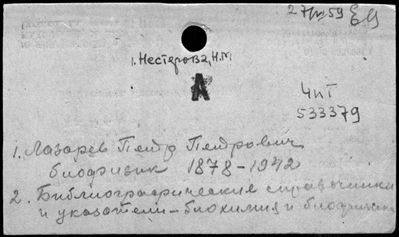 27/VI 59
1. Нестерова, Н.М
А
ЧиТ
533379
1. Лазарев Петр Петрович
биофизик 1878-1942
2. Библиографические справочники
и указатели-биохимия и биофизика